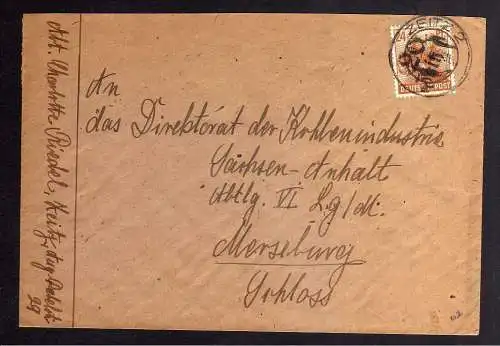 Abs. Charlotte Riedel, Zeitz, Aug. Bebelst.
29
ZEITZ 2
20
DEUTSCHE POST
An
das Direktorat der Kohlenindustrie
Sachsen-Anhalt
Abtlg. VI Lg/M.
Merseburg
Schloss